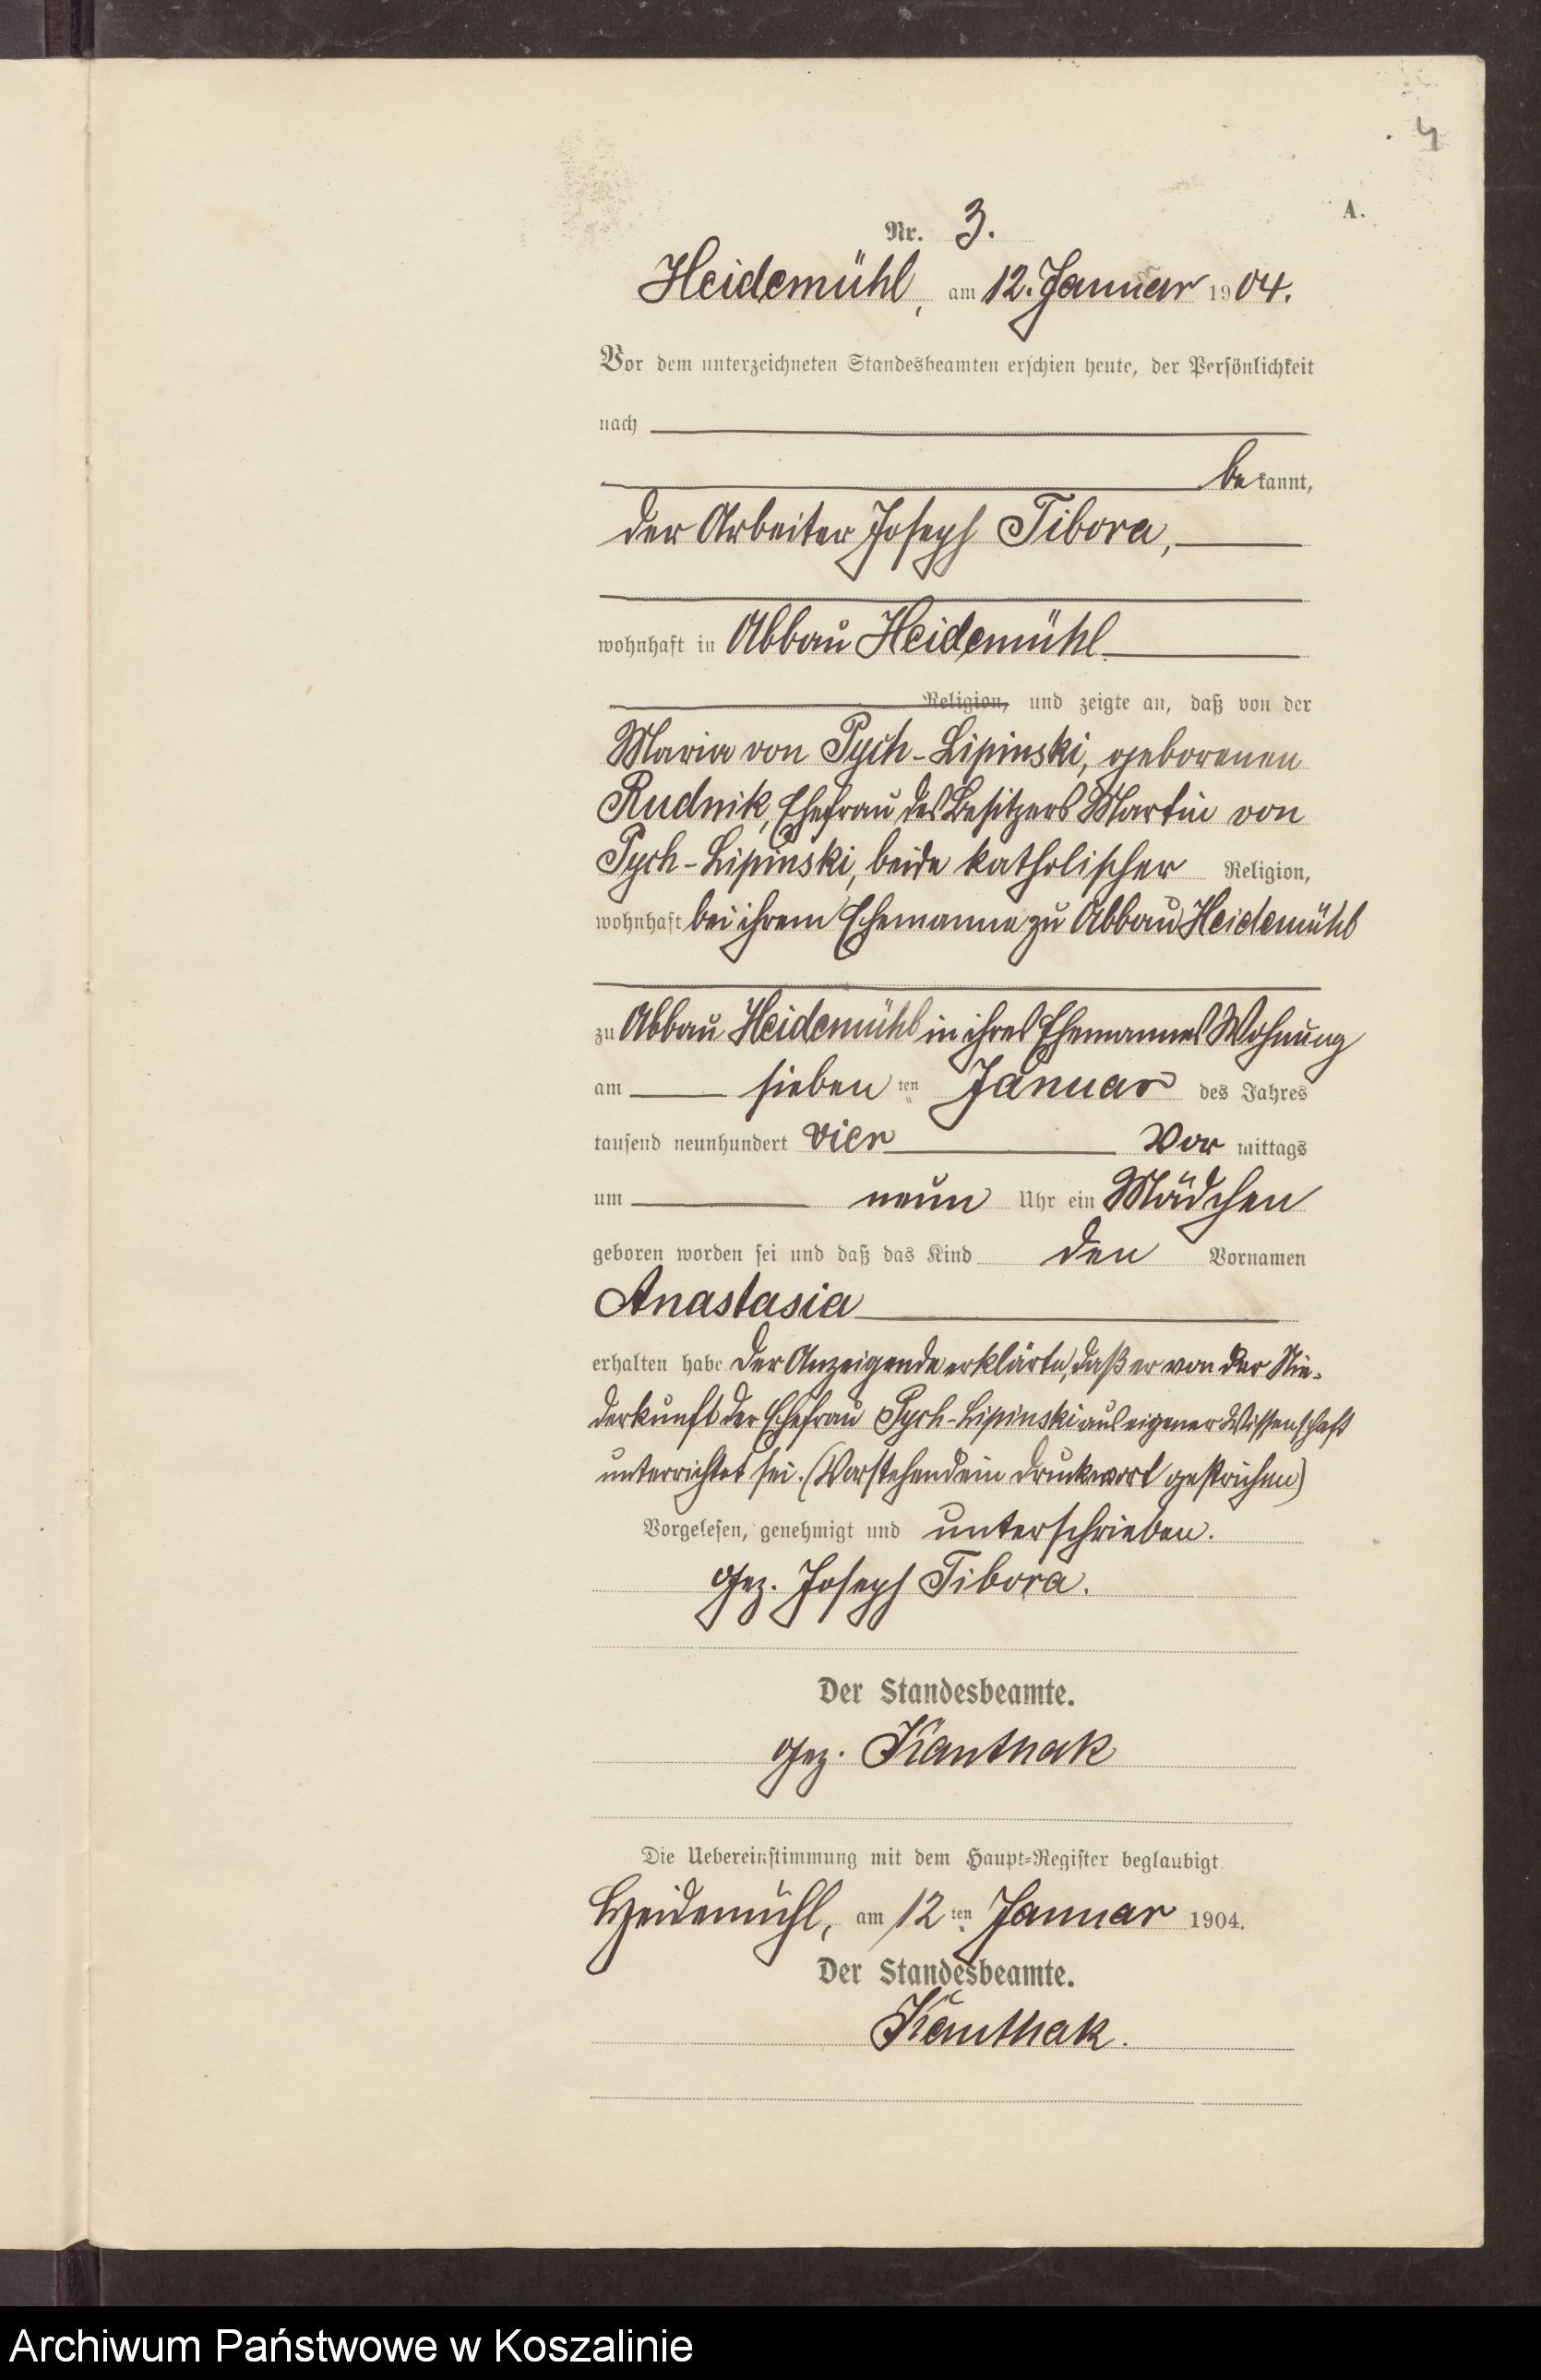 4
A.
Nr. 3.
Heidemühl, am 12. Januar 1904.
Vor dem unterzeichneten Standesbeamten erschien heute, der Persönlichkeit
nach
bekannt,
der Arbeiter Joseph Tibora,
wohnhaft in Abbau Heidemühl
Religion, und zeigte an, daß von der
Maria von Pych-Lipinski, geborenen
Rudnik, Ehefrau des Besitzers Martin von
Pych-Lipinski, beide katholischer Religion,
wohnhaft bei ihrem Ehemanne zu Abbau Heidemühl
zu Abbau Heidemühl in ihres Ehemannes Wohnung
am siebenten Januar des Jahres
tausend neunhundert vier Vormittags
um neun Uhr ein Mädchen
geboren worden sei und daß das Kind den Vornamen
Anastasia
erhalten habe. Der Anzeigende erklärte, daß er von der Nie-
derkunft der Ehefrau Pych-Lipinski aus eigener Wissenschaft
unterrichtet sei. (Vorstehend ein Druckwort gestrichen)
Vorgelesen, genehmigt und unterschrieben.
gez. Joseph Tibora.
Der Standesbeamte.
gez. Kanthak
Die Uebereinstimmung mit dem Haupt-Register beglaubigt
Heidemühl, am 12ten Januar 1904.
Der Standesbeamte.
Kanthak.
Archiwum Państwowe w Koszalinie